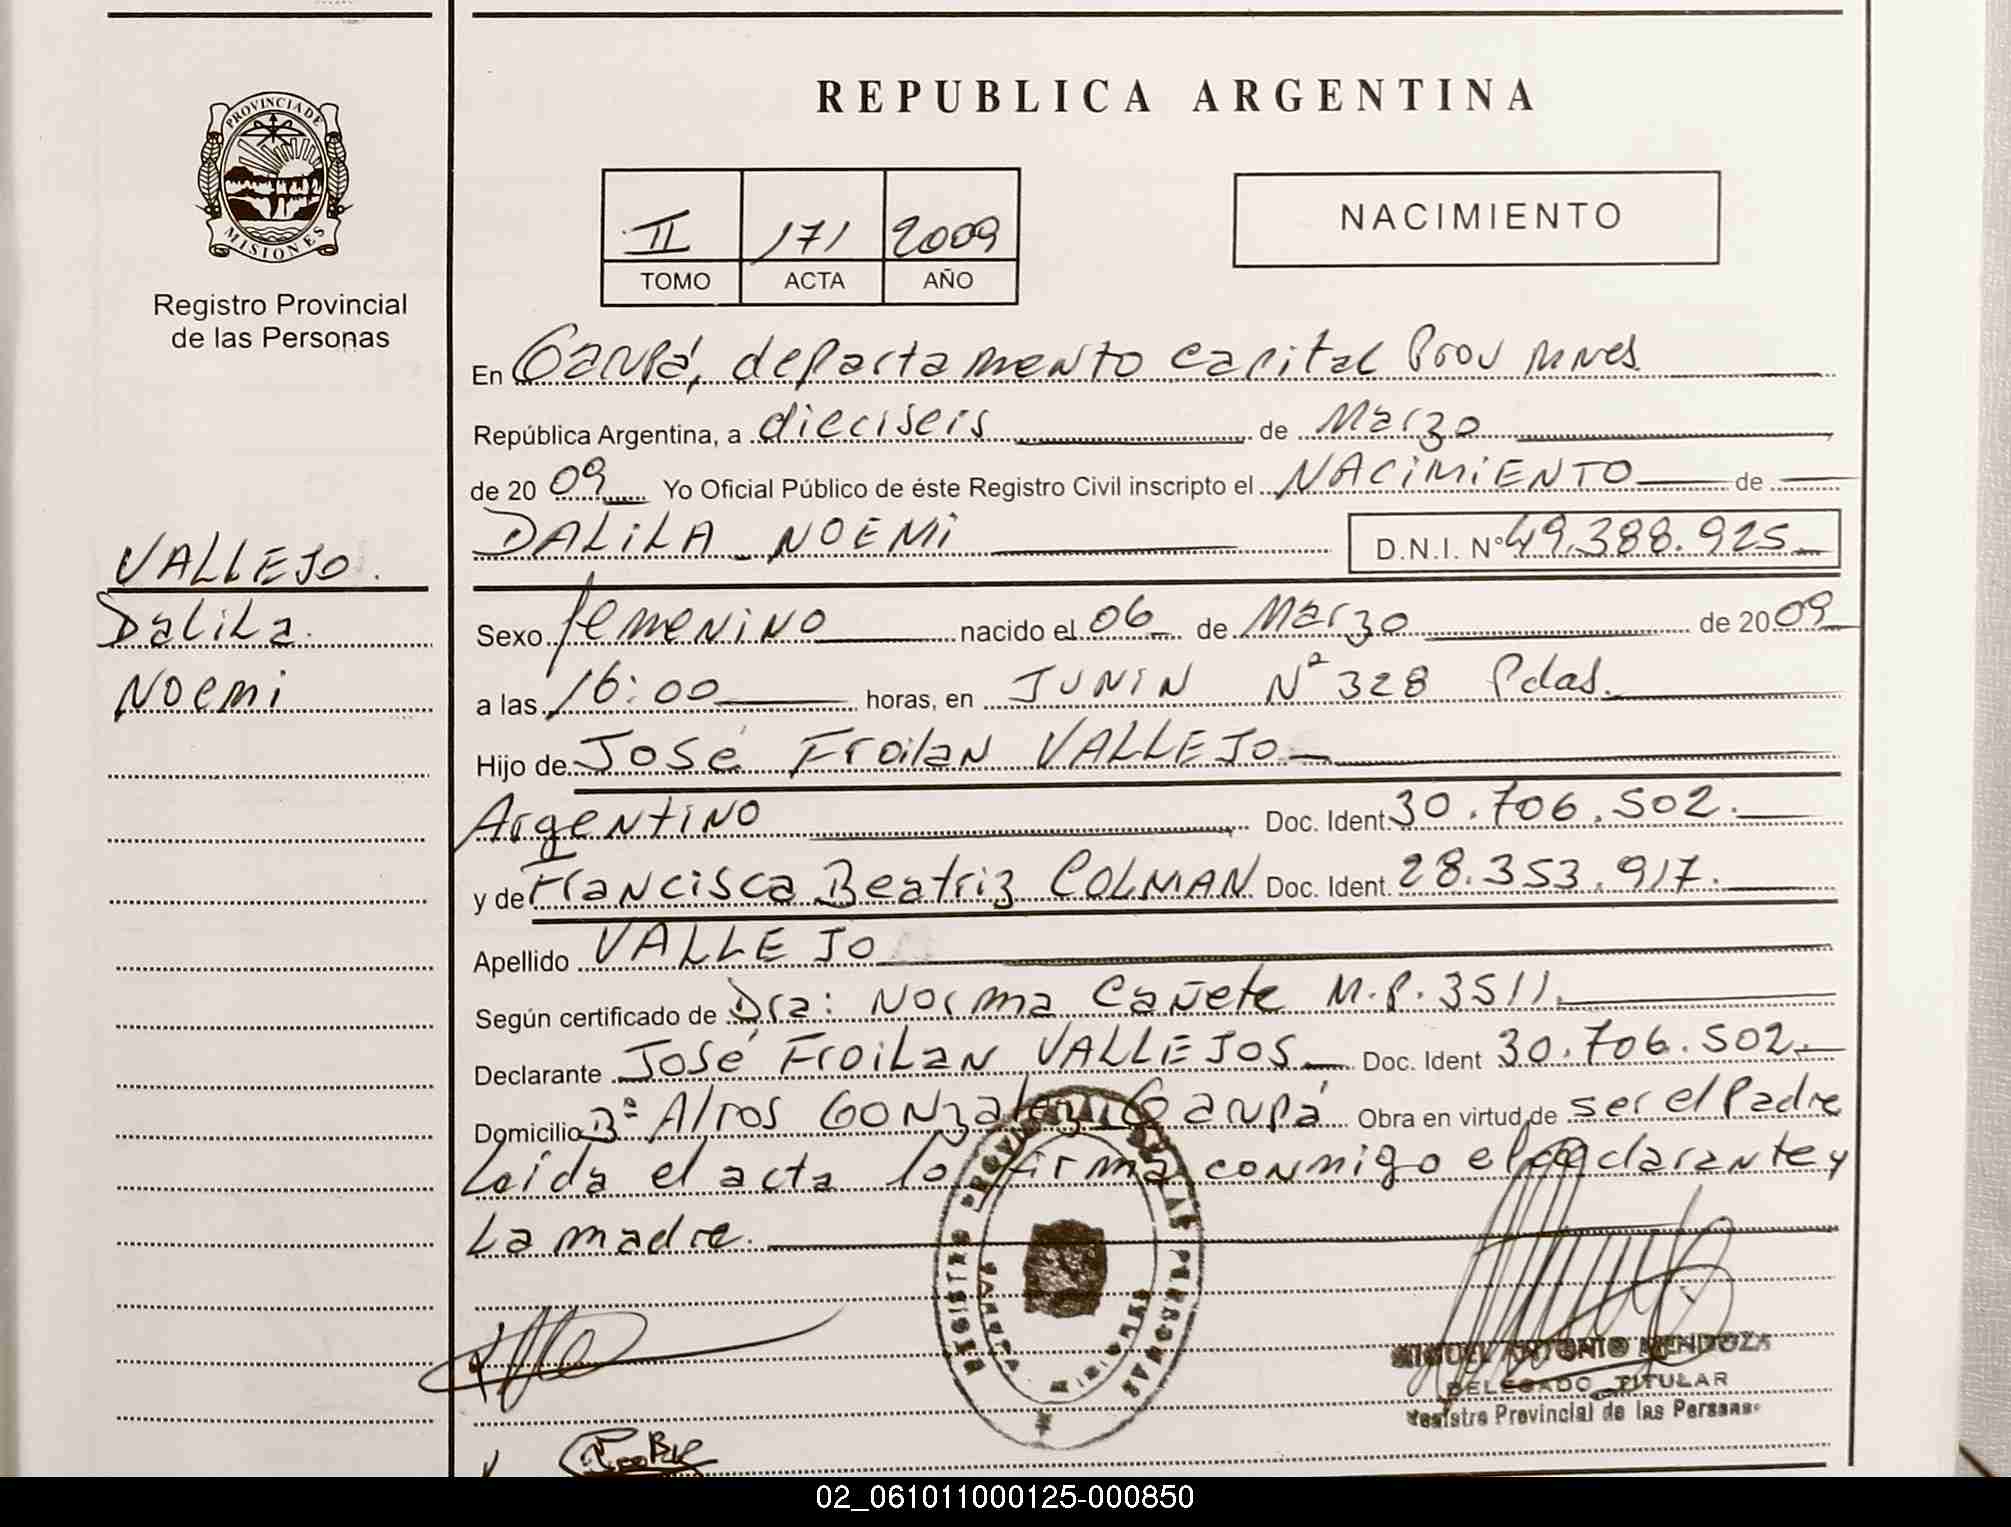 REPUBLICA ARGENTINA
PROVINCIA DE
MISIONES
Registro Provincial
de las Personas
II 171 2009
TOMO ACTA AÑO
NACIMIENTO
En Garupá, departamento capital Prov Mnes.
República Argentina, a dieciseis de Marzo
de 2009 Yo Oficial Público de éste Registro Civil inscripto el NACIMIENTO de
DALILA NOEMI D.N.I. Nº 49.388.925
VALLEJO.
Dalila.
Noemi
Sexo femenino nacido el 06 de Marzo de 2009
a las 16:00 horas, en JUNIN Nº 328 Pdas.
Hijo de José Froilan VALLEJO
Argentino Doc. Ident. 30.706.502.
y de Francisca Beatriz COLMAN Doc. Ident. 28.353.917.
Apellido VALLEJO
Según certificado de Dra: Norma Cañete M.P. 3511.
Declarante José Froilan VALLEJOS Doc. Ident 30.706.502.
Domicilio Bº A/ros Gonzalez, Garupá Obra en virtud de ser el Padre
Leida el acta lo firma conmigo el declarante y
La madre.
REGISTRO PROVINCIAL DE LAS PERSONAS
MIGUEL ANTONIO MENDOZA
DELEGADO TITULAR
Registro Provincial de las Personas
02_061011000125-000850